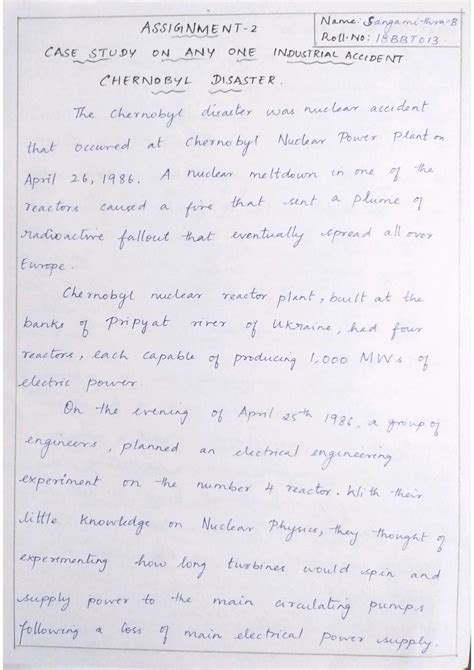 ASSIGNMENT-2
Name: Sangamithra-B
Roll.No: 18BBT013
CASE STUDY ON ANY ONE INDUSTRIAL ACCIDENT
CHERNOBYL DISASTER.
The Chernobyl disaster was nuclear accident
that occured at Chernobyl Nuclear Power Plant on
April 26, 1986. A nuclear meltdown in one of the
reactors caused a fire that sent a plume of
radioactive fallout that eventually spread all over
Europe.
Chernobyl nuclear reactor plant, built at the
banks of Pripyat river of Ukraine, had four
reactors, each capable of producing 1,000 MWs of
electric power.
On the evening of April 25th 1986, a group of
engineers, planned an electrical engineering
experiment on the number 4 reactor. With their
little knowledge on Nuclear Physics, they thought of
experimenting how long turbines would spin and
supply power to the main circulating pumps
following a loss of main electrical power supply.